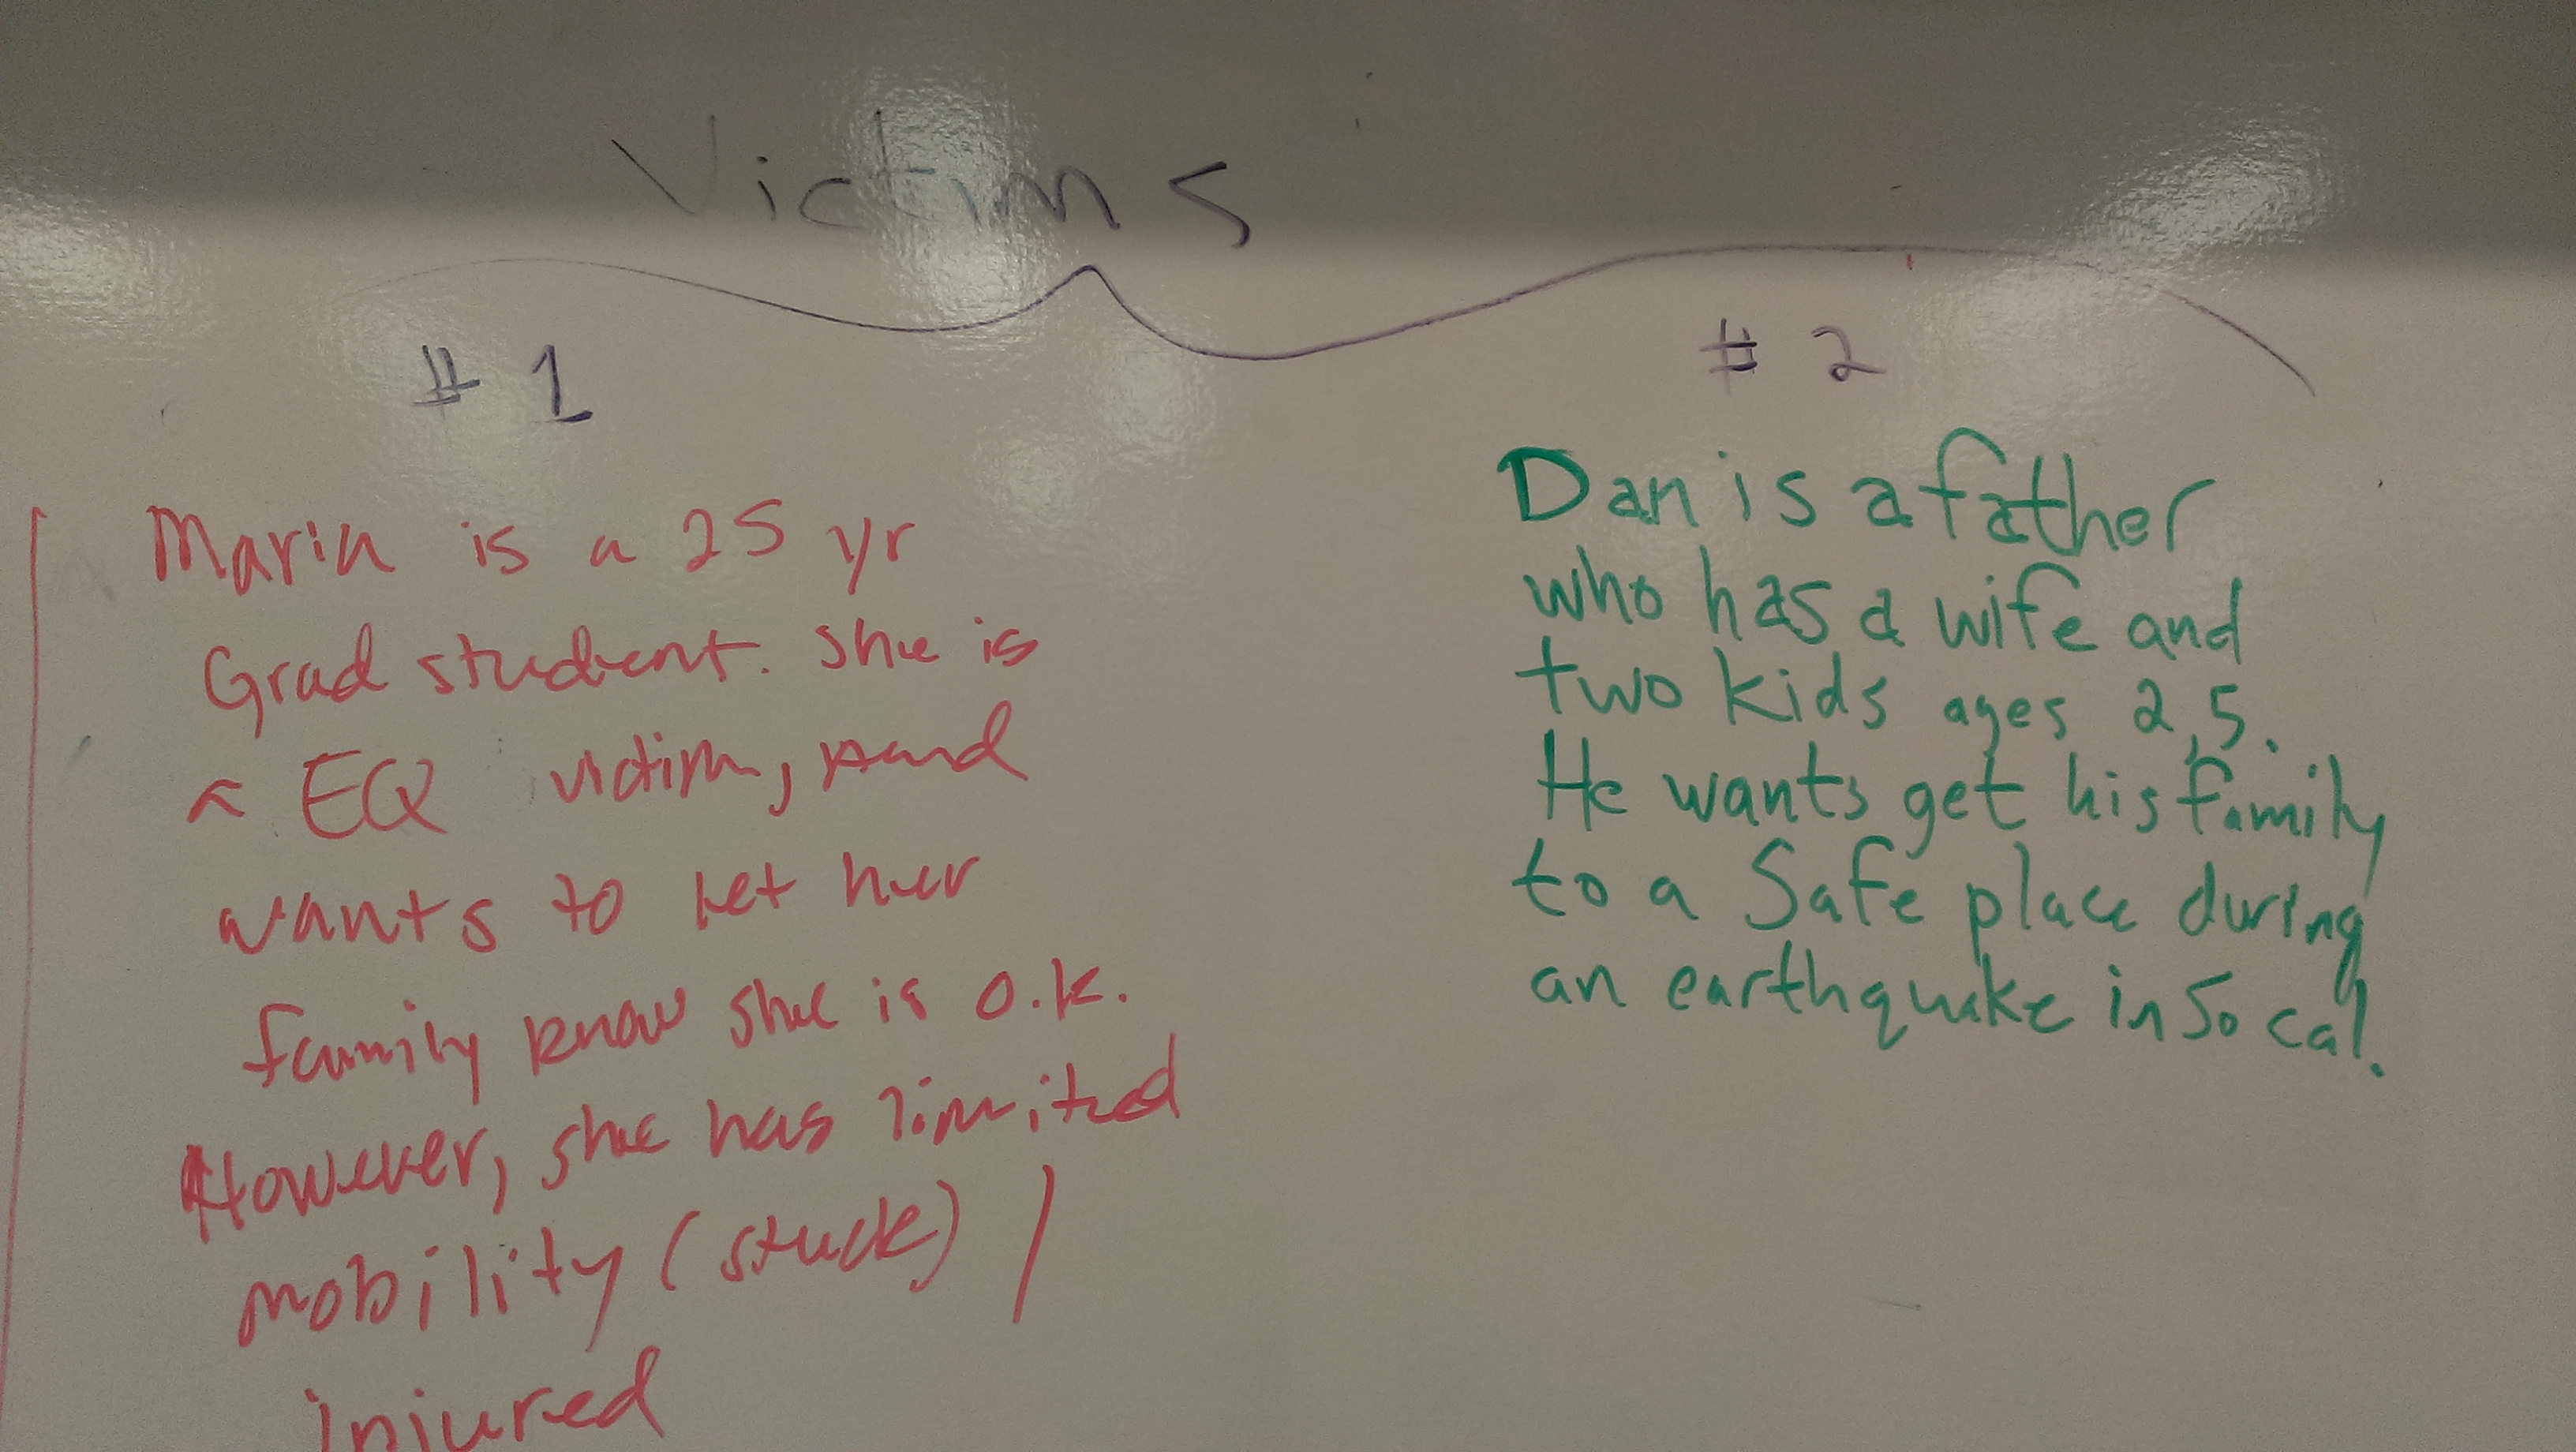 Victims
# 1
Maria is a 25 yr
Grad student. She is
a EQ victim, and
wants to let her
family know she is o.k.
However, she has limited
mobility (stuck) /
injured
# 2
Dan is a father
who has a wife and
two kids ages 2,5.
He wants get his family
to a Safe place during
an earthquake in So cal.